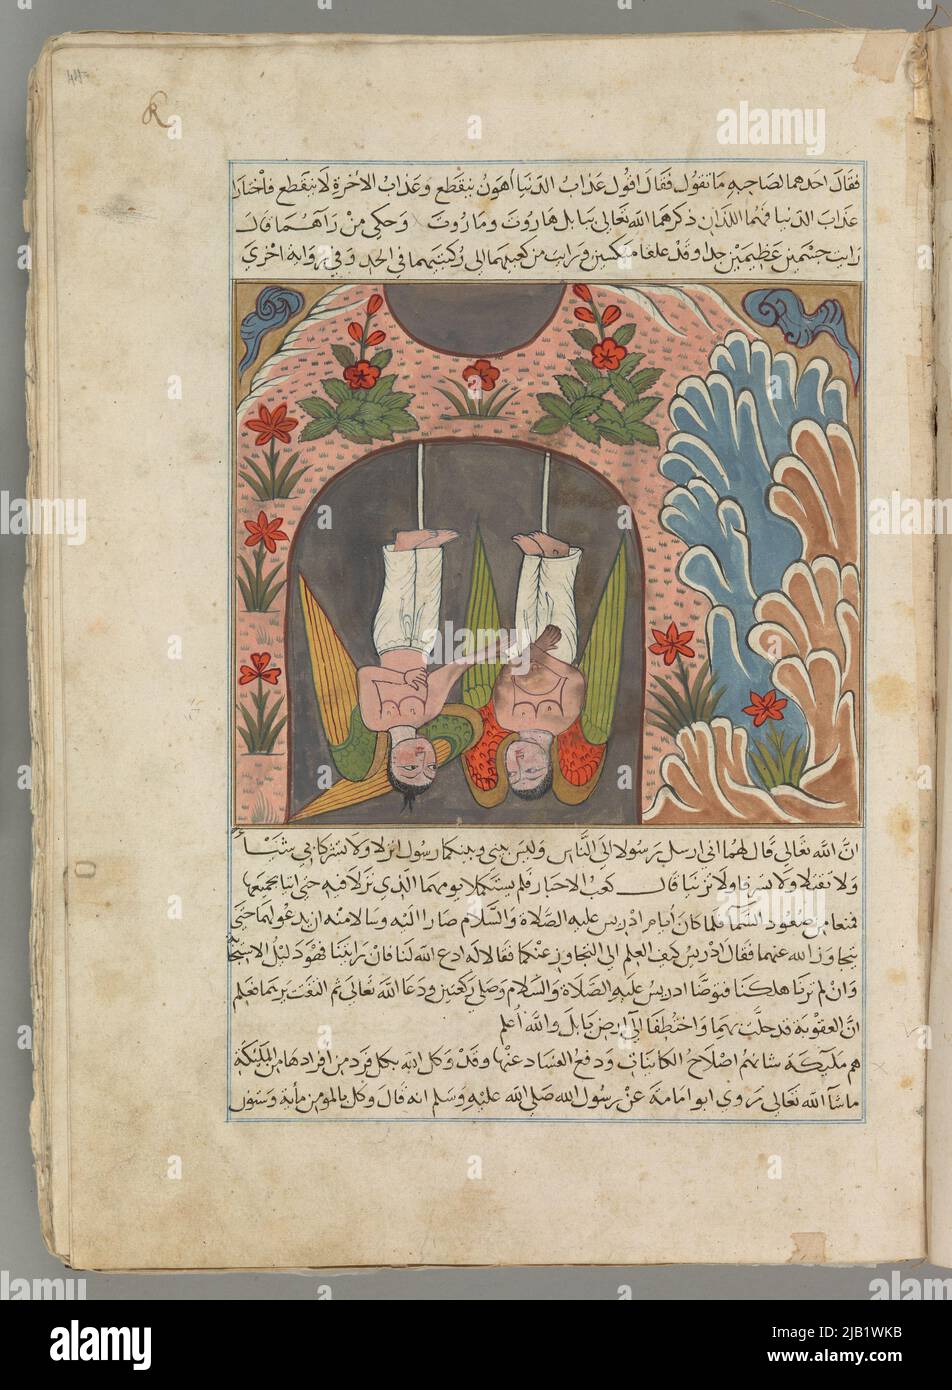 فقال احدهما لصاحبه ما تقول فقال اقول عذاب الدنيا أهون ينقطع وعذاب الآخرة لا ينقطع فاختارا
عذاب الدنيا فهما اللذان ذكرهما الله تعالى ببابل هاروت وماروت وحكى من رآهما قال
رايت جسمين عظيمين جدا وقد علقا منكسين ورايت من كعبهما الى ركبتهما في الحديد وفي رواية اخرى
انّ الله تعالى قال لهما اني ارسل رسولا الى النّاس وليس بيني وبينكما رسول انزلا ولا تشركا بي شيئا
ولا تقتلا ولا تسرقا ولا تزنيا قال كعب الاحبار فلم يستكملا يومهما الذي نزلا فيه حتى اتيا بجميعها
فمنعا من صعود السما فلما كان أيام ادريس عليه الصّلاة والسّلام صارا اليه وسالا منه ان يدعو لهما حتى
يتجاوز الله عنهما فقال ادريس كيف العلم الى التجاوز عنكما فقالا له ادع الله لنا فان رايتنا فهو دليل الاستجابة
وان لم ترنا هلكنا فتوضّا ادريس عليه الصّلاة والسّلام وصلى ركعتين ودعا الله تعالى ثم التفت برهما فعلم
انّ العقوبة قد حلّت بهما واختطفا الى ارض بابل والله أعلم
هم مليكة شانهم اصلاح الكاينات ودفع الفساد عنها وقد وكل الله بكل فرد من افرادها من المليكة
ماشاء الله تعالى روى ابو امامة عن رسول الله صلى الله عليه وسلم انه قال وكل بالمومن مأية وستون
alamy
Image ID: 2JB1WKB
www.alamy.com